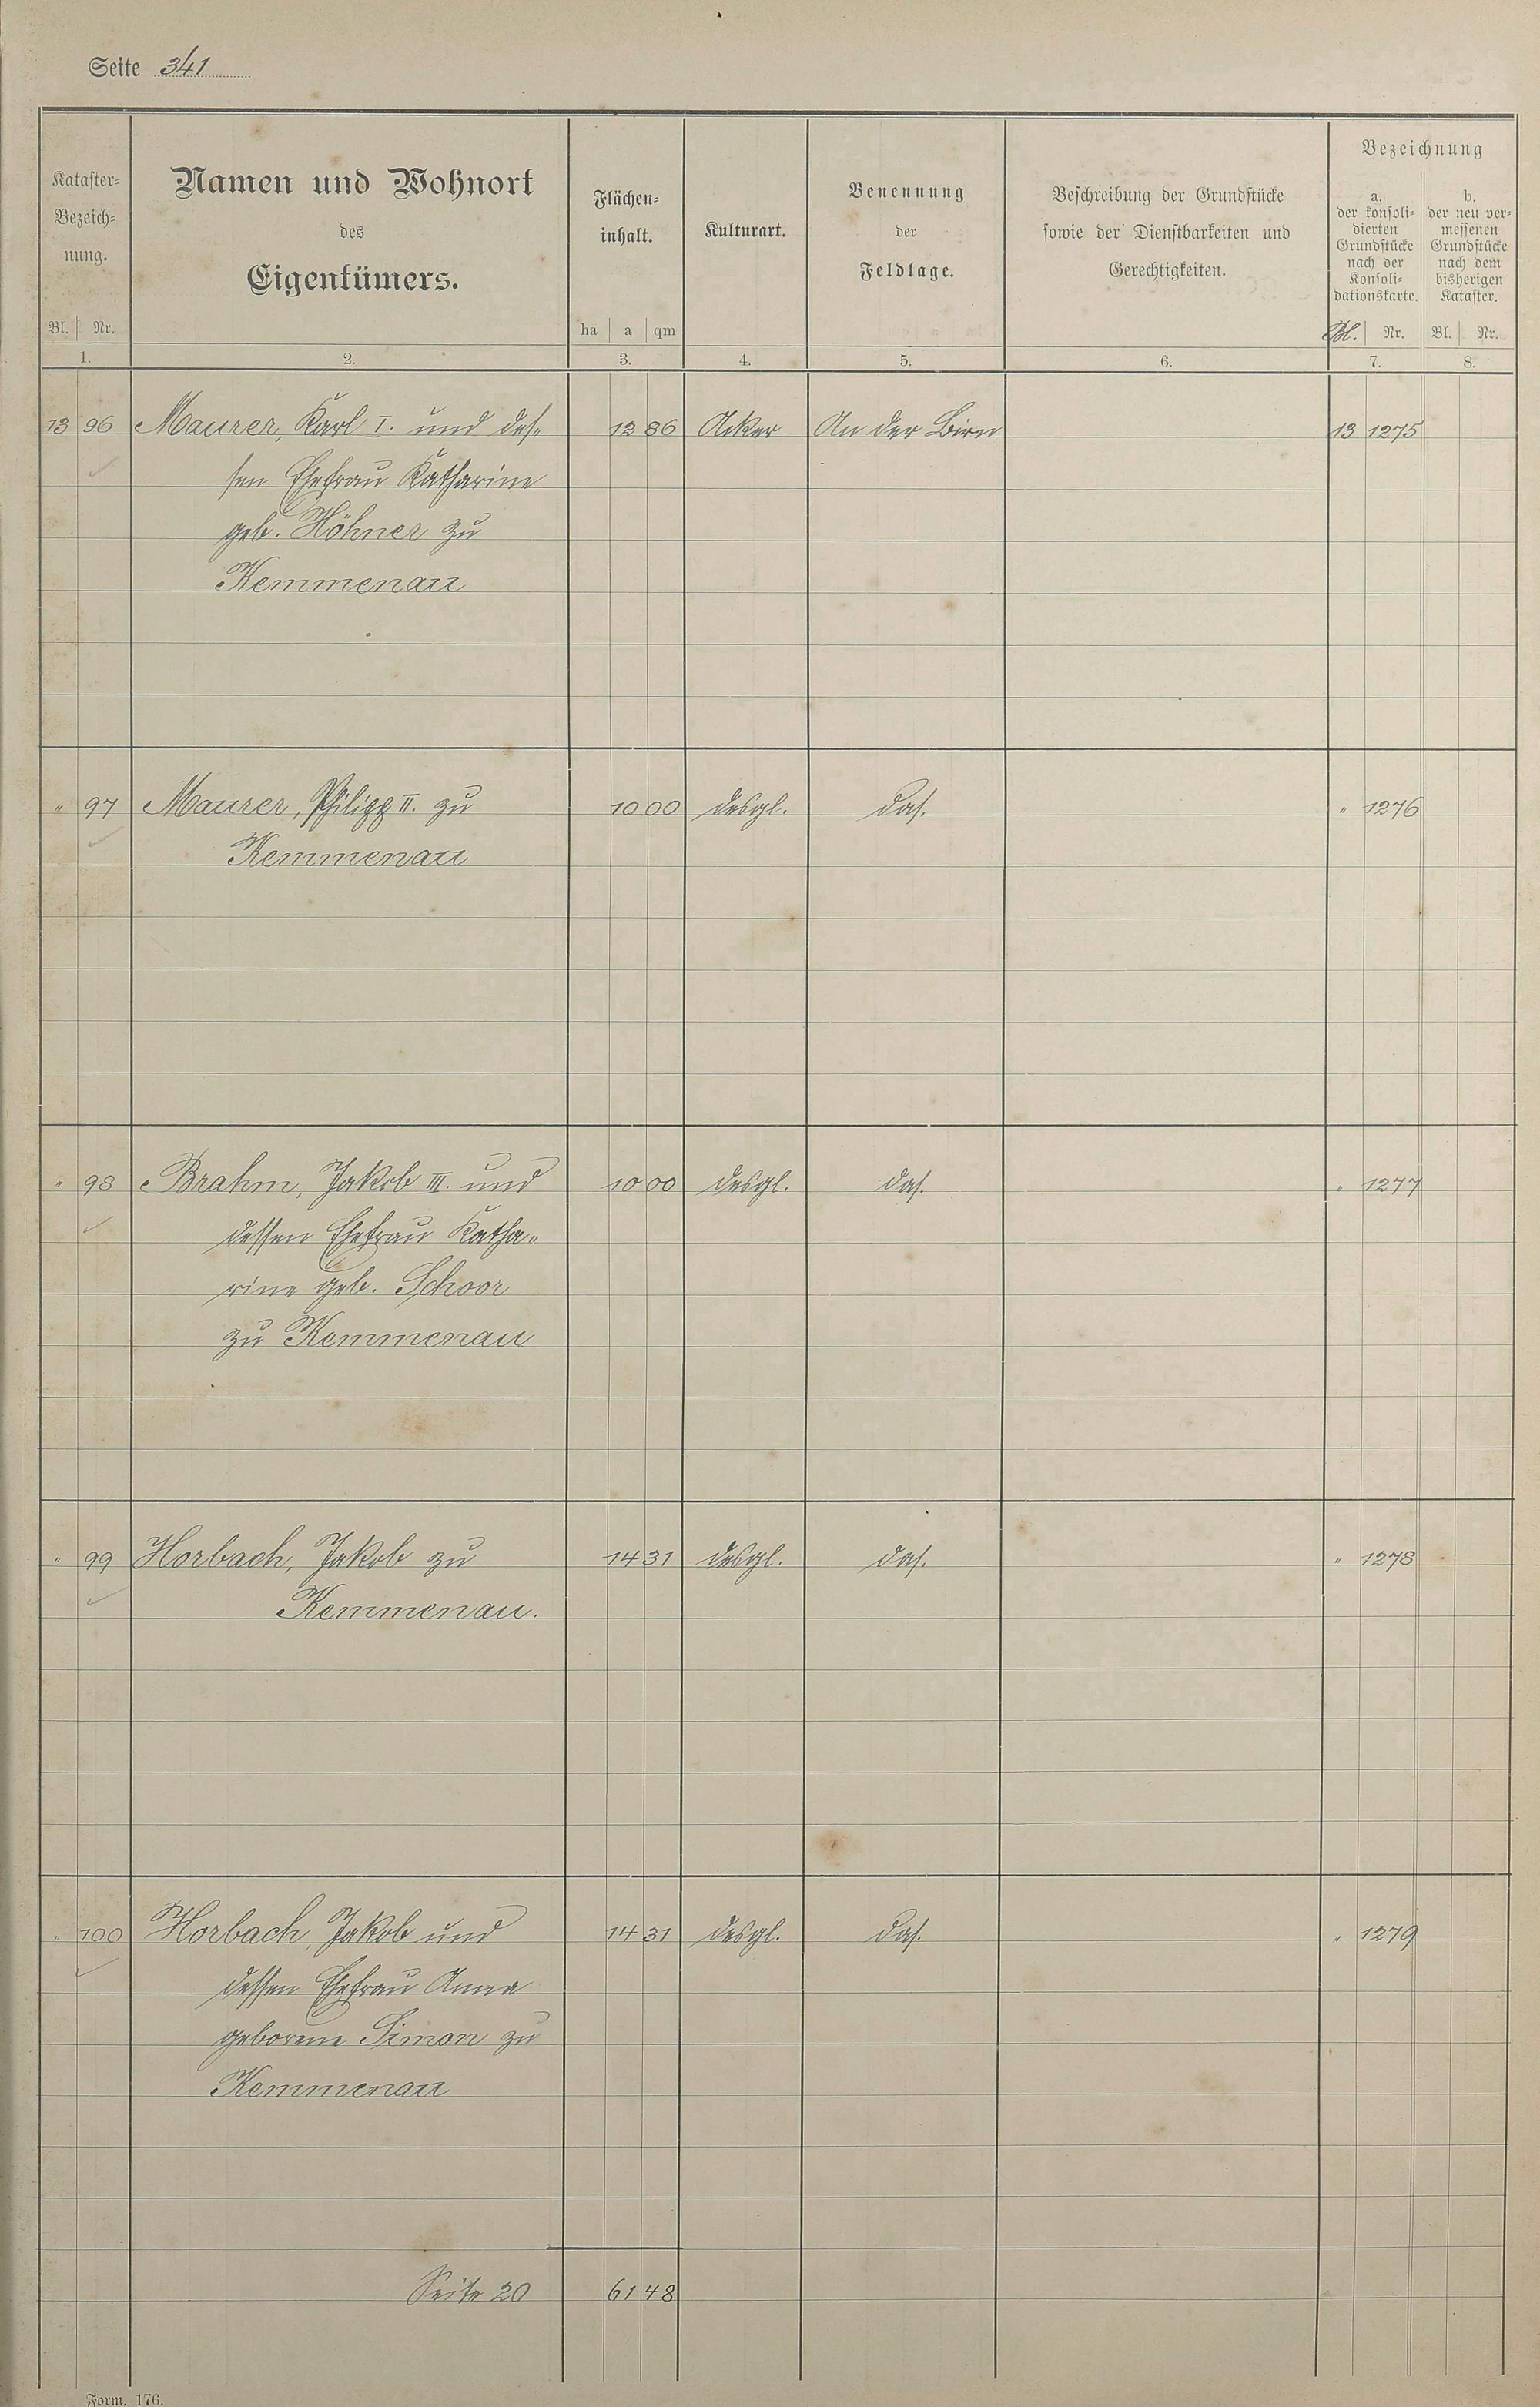 Seite 341
Kataster-
Bezeich-
nung.
Bl. Nr.
1.
Namen und Wohnort
des
Eigentümers.
2.
Flächen-
inhalt.
ha a qm
3.
Kulturart.
4.
Benennung
der
Feldlage.
5.
Beschreibung der Grundstücke
sowie der Dienstbarkeiten und
Gerechtigkeiten.
6.
Bezeichnung
a.
der konsoli-
dierten
Grundstücke
nach der
Konsoli-
dationskarte.
Bl. Nr.
7.
b.
der neu ver-
messenen
Grundstücke
nach dem
bisherigen
Kataster.
Bl. Nr.
8.
13 96 Maurer, Karl I. und des- 12 86 Acker An der Birn 13 1275
sen Ehefrau Katharine
geb. Höhner zu
Kemmenau
" 97 Maurer, Philipp II. zu 10 00 desgl. das. " 1276
Kemmenau
" 98 Brahm, Jakob III. und 10 00 desgl. das. " 1277
dessen Ehefrau Katha-
rine geb. Schoor
zu Kemmenau
" 99 Horbach, Jakob zu 14 31 desgl. das. " 1278
Kemmenau.
" 100 Horbach, Jakob und 14 31 desgl. das. " 1279
dessen Ehefrau Anna
geborene Simon zu
Kemmenau
Seite 20 61 48
Form. 176.